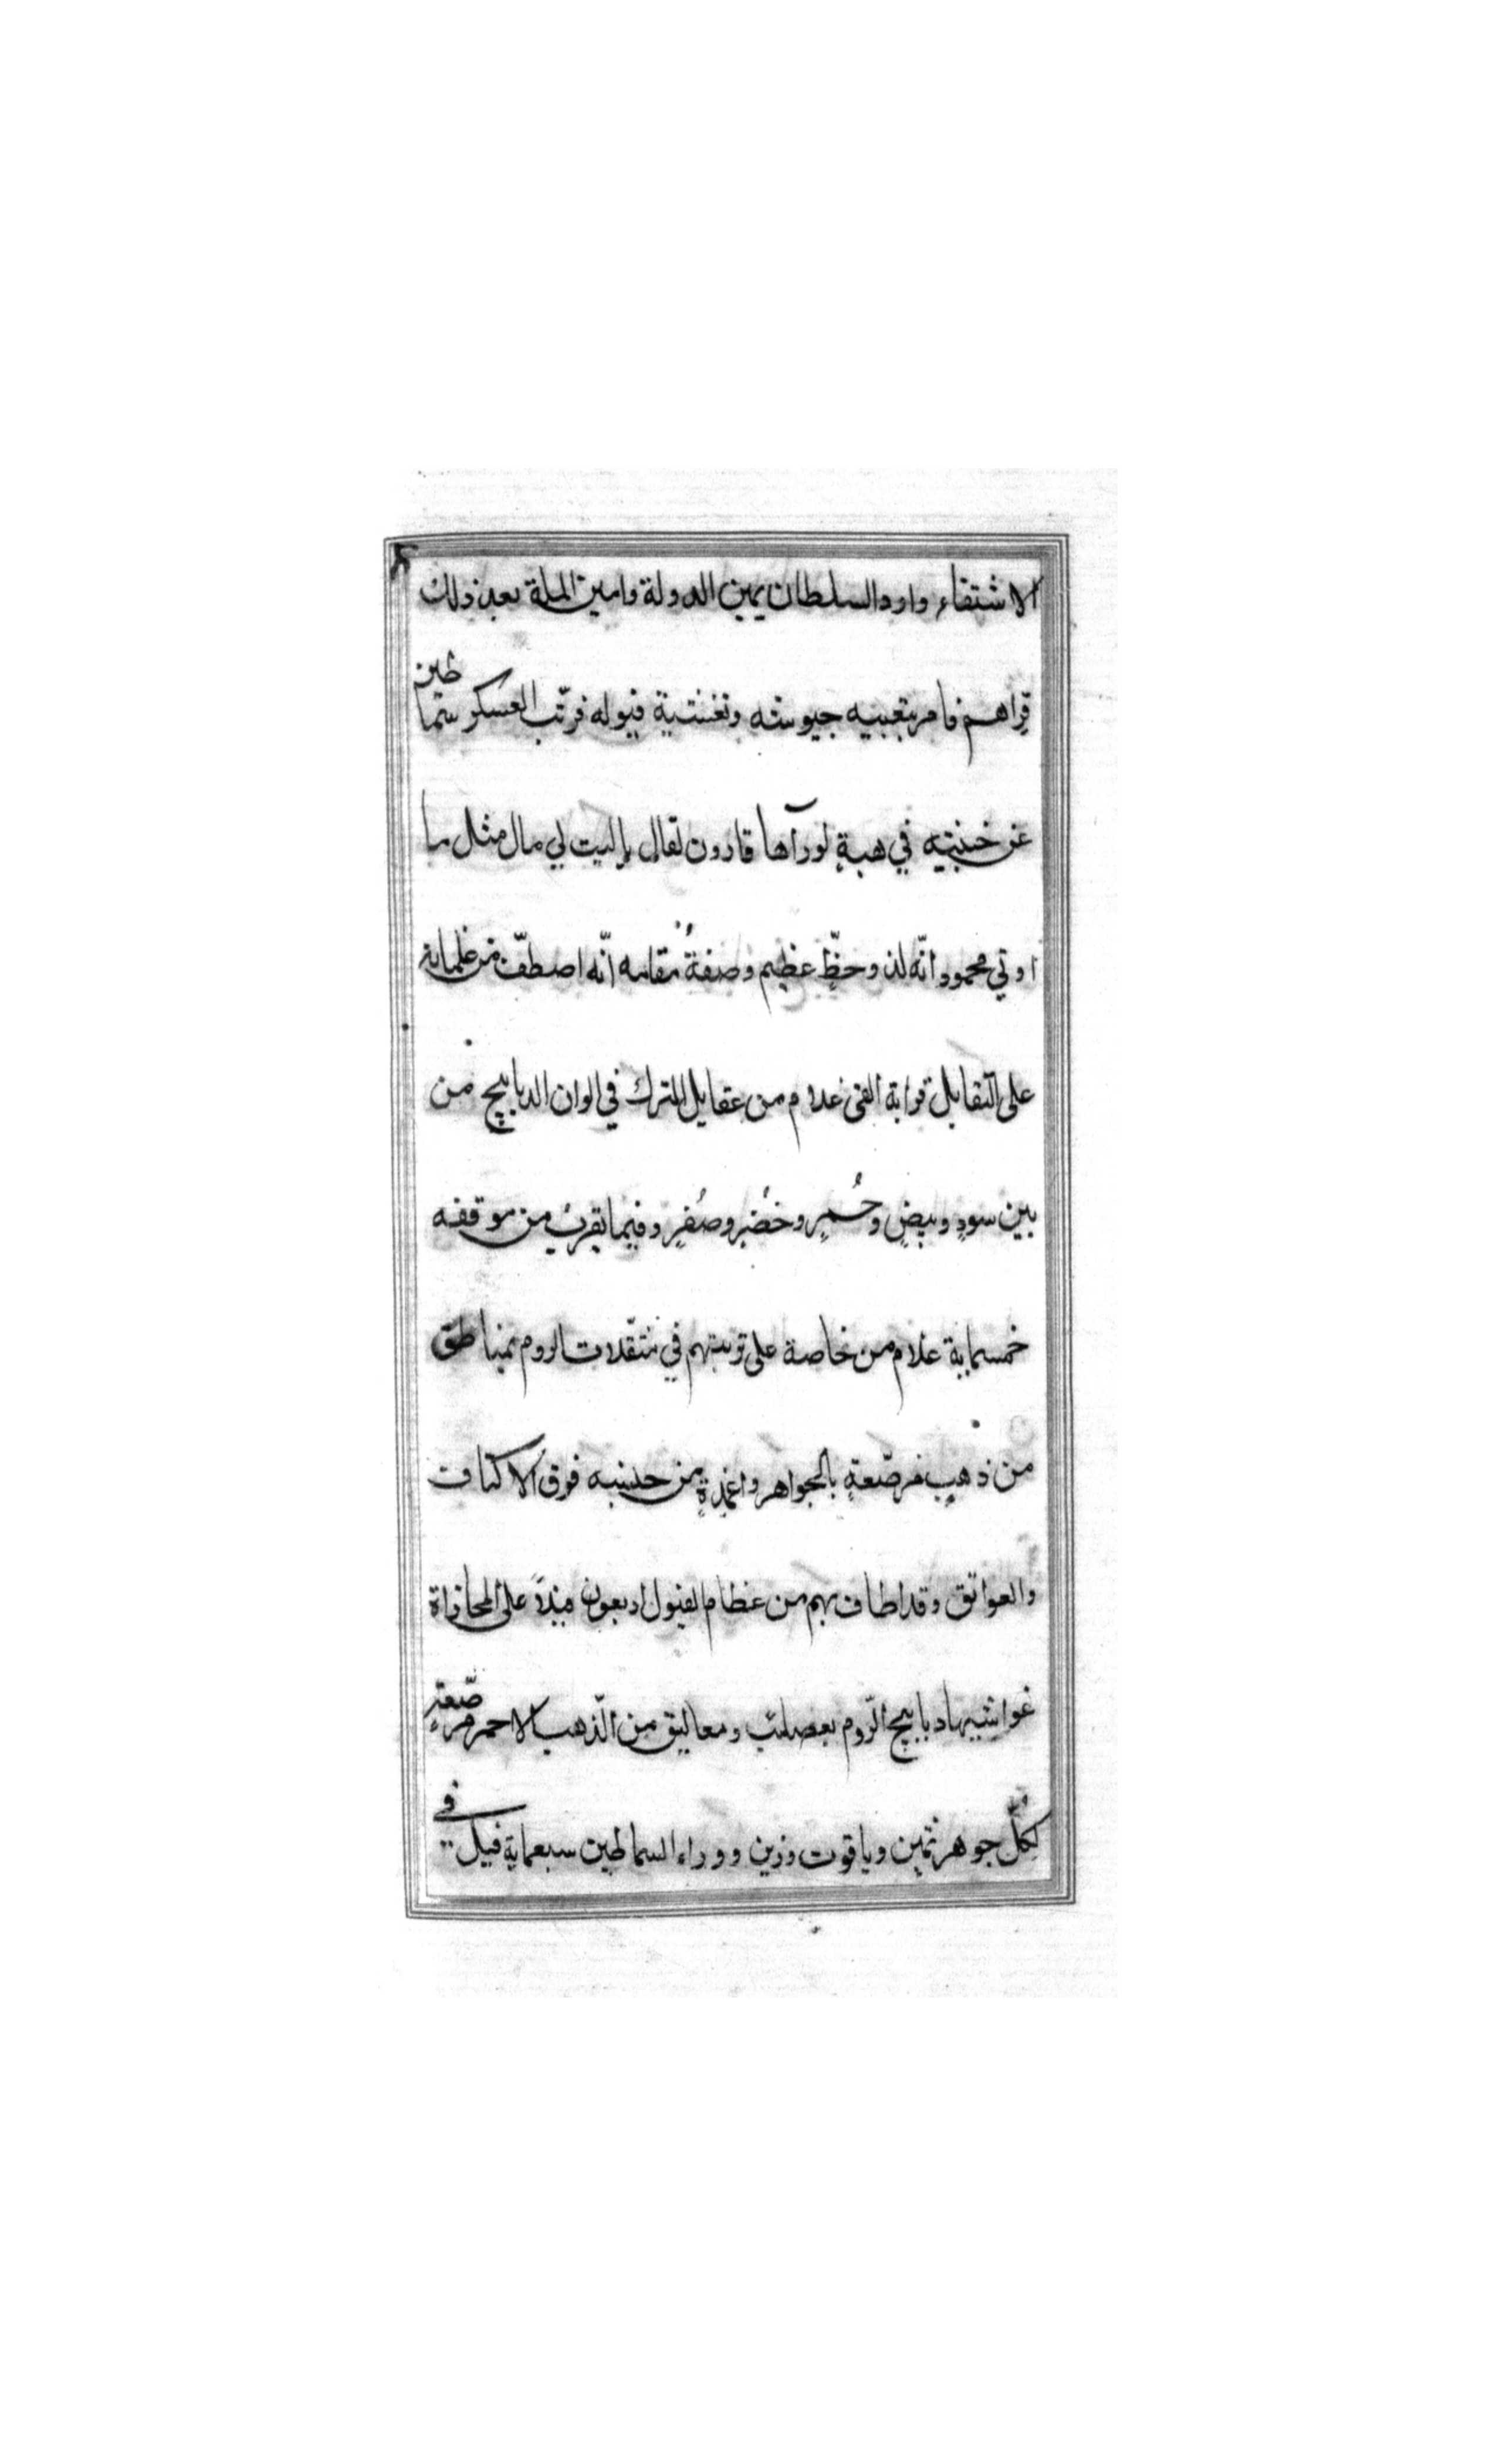 الاشتفاء واود السلطان يمين الدولة وامين الملة بعد ذلك
قراهم فامر بتعبيه جيوشه وتغشية فيوله فرتب العسكر سماطين
عن خنبتيه في هيبة لو رآها قارون لقال ياليت لي مال مثل ما
اوتي محمود انّه لذو حظٍّ عظيم وصفةُ مقامه انّه اصطفّ من غلمانه
على التقابل قرابة الفى غلام من عقايل الترك في الوان الدبابيج من
بين سودٍ وبيضٍ وحُمرٍ وخُضرٍ وصُفرٍ وفيما يقرب من موقفه
خمسماية غلام من خاصة على توبتهم في مثقلات الروم بمناطق
من ذهبٍ مرصّعةٍ بالجواهر واغمدةٍ من جنسه فوق الاكتاف
والعواتق وقد اطاف بهم من عظام الفيول اربعون فيلاً على المحاذاة
غواشيها دبابيج الرّوم بعصايب ومعاليق من الذّهب الاحمر مرصّعةٍ
بكلّ جوهر ثمين وياقوت رزين ووراء السماطين سبعماية فيل في